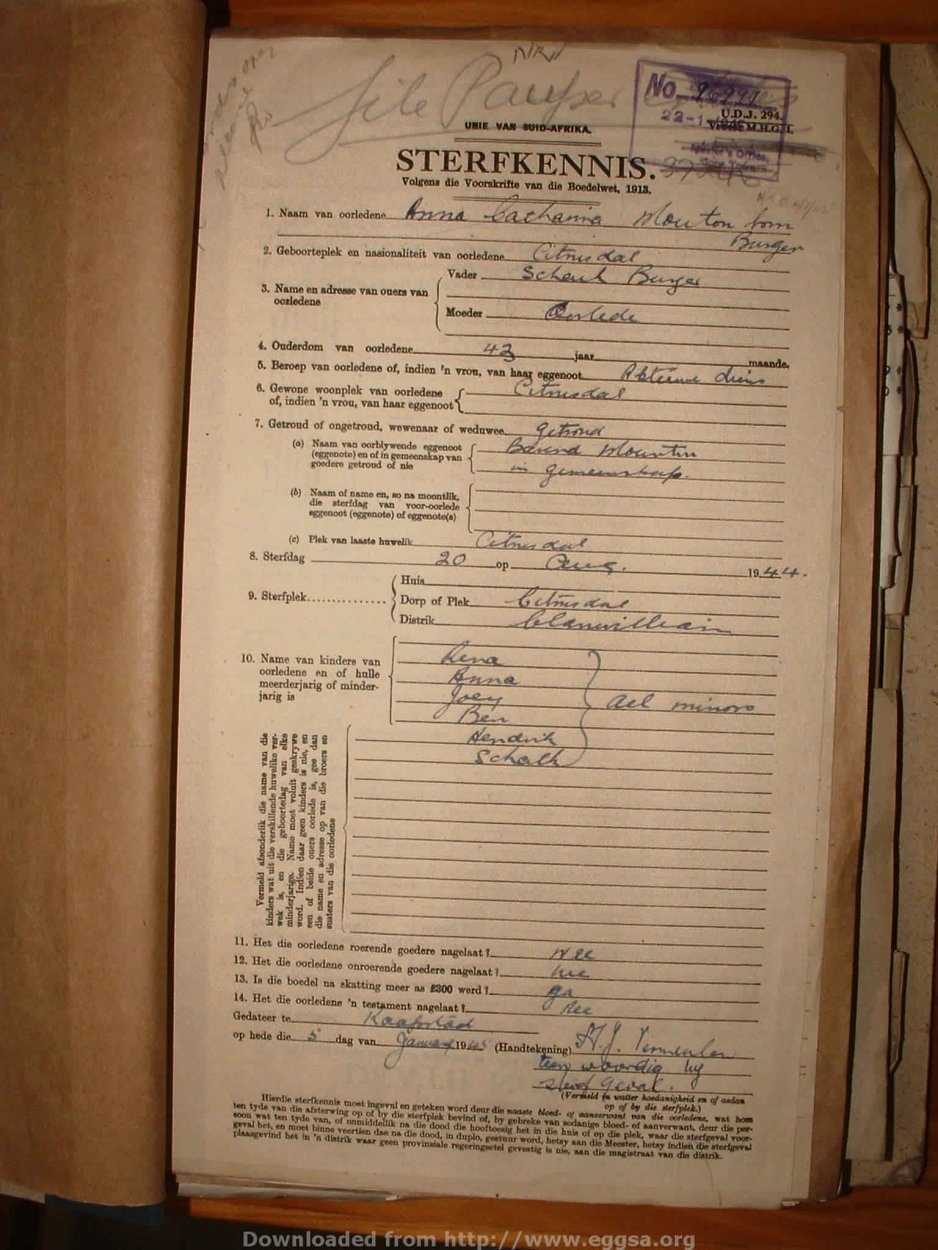 File Pauper
No 96291
U.D.J. 294.
UNIE VAN SUID-AFRIKA.
STERFKENNIS.
Volgens die Voorskrifte van die Boedelwet, 1913.
1. Naam van oorledene Anna Catharina Mouton born
Burger
2. Geboorteplek en nasionaliteit van oorledene Citrusdal
3. Name en adresse van ouers van oorledene
Vader Schalk Burger
Moeder Oorlede
4. Ouderdom van oorledene 43 jaar maande.
5. Beroep van oorledene of, indien 'n vrou, van haar eggenoot Aktiewe diens
6. Gewone woonplek van oorledene Citrusdal
of, indien 'n vrou, van haar eggenoot
7. Getroud of ongetroud, wewenaar of weduwee getroud
(a) Naam van oorblywende eggenoot Barend Mouton
(eggenote) en of in gemeenskap van in gemeenskap.
goedere getroud of nie
(b) Naam of name en, so na moontlik,
die sterfdag van voor-oorlede
eggenoot (eggenote) of eggenote(s)
(c) Plek van laaste huwelik Citrusdal
8. Sterfdag 20 op Aug. 1944.
9. Sterfplek
Huis
Dorp of Plek Citrusdal
Distrik Clanwilliam
10. Name van kinders van
oorledene en of hulle
meerderjarig of minder-
jarig is
Lena
Anna
Joey
Ben
Hendrik
Schalk
all minors
Vermeld afsonderlik die name van die
kinders wat uit die verskillende huwelike ver-
wek is, en die geboortedag van elke
minderjarige. Name moet voluit geskrywe
word. Indien daar geen kinders is nie, en
een of beide ouers oorlede is, gee dan
die name en adresse op van die broers en
susters van die oorledene
11. Het die oorledene roerende goedere nagelaat? Nee
12. Het die oorledene onroerende goedere nagelaat? Nee
13. Is die boedel na skatting meer as £300 werd? Ja
14. Het die oorledene 'n testament nagelaat? Nee
Gedateer te Kaapstad
op hede die 5 dag van Januarie 1945 (Handtekening) H.J. Vermeulen
teenwoordig by
sterf geval.
(Vermeld in watter hoedanigheid en of aedan
op of by die sterfplek.)
Hierdie sterfkennis moet ingevul en geteken word deur die naaste bloed- of aanverwant van die oorledene, wat hom
ten tyde van die afsterwing op of by die sterfplek bevind of, by gebreke van sodanige bloed- of aanverwant, deur die per-
soon wat ten tyde van, of onmiddellik na die dood die hooftoesig het in die huis of op die plek, waar die sterfgeval voor-
geval het, en moet binne veertien dae na die dood, in duplo, gestuur word, hetsy aan die Meester, hetsy indien die sterfgeval
plaasgevind het in 'n distrik waar geen provinsiale regeringsetel gevestig is nie, aan die magistraat van die distrik.
Downloaded from http://www.eggsa.org